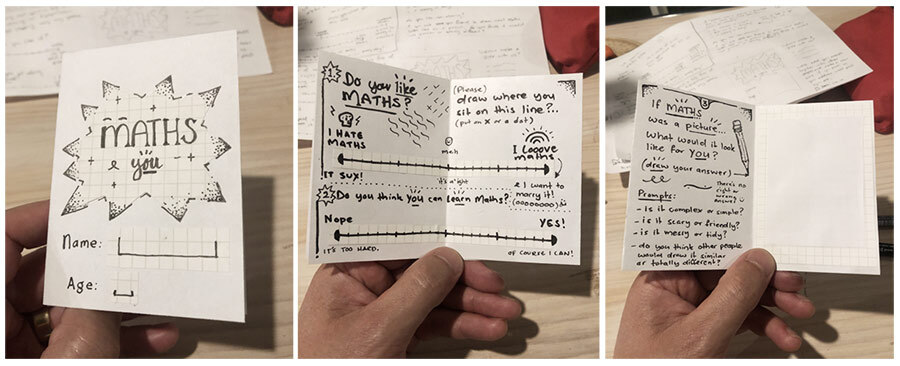 MATHS
& you
Name:
Age:
1. Do you like
MATHS?
I HATE
MATHS
IT SUX!
(Please)
draw where you
sit on this line?...
(put an X or a dot)
meh
it's alright
I looove
maths
& I want to
marry it!
(ooooooooo)
2. Do you think you can learn Maths?
Nope
YES!
IT'S TOO HARD.
OF COURSE I CAN!
3
If MATHS
was a picture...
what would it look
like for you?
(draw your answer)
There's no
right or
wrong answer!
Prompts:
- Is it complex or simple?
- is it scary or friendly?
- is it messy or tidy?
- do you think other people
would draw it similar
or totally different?